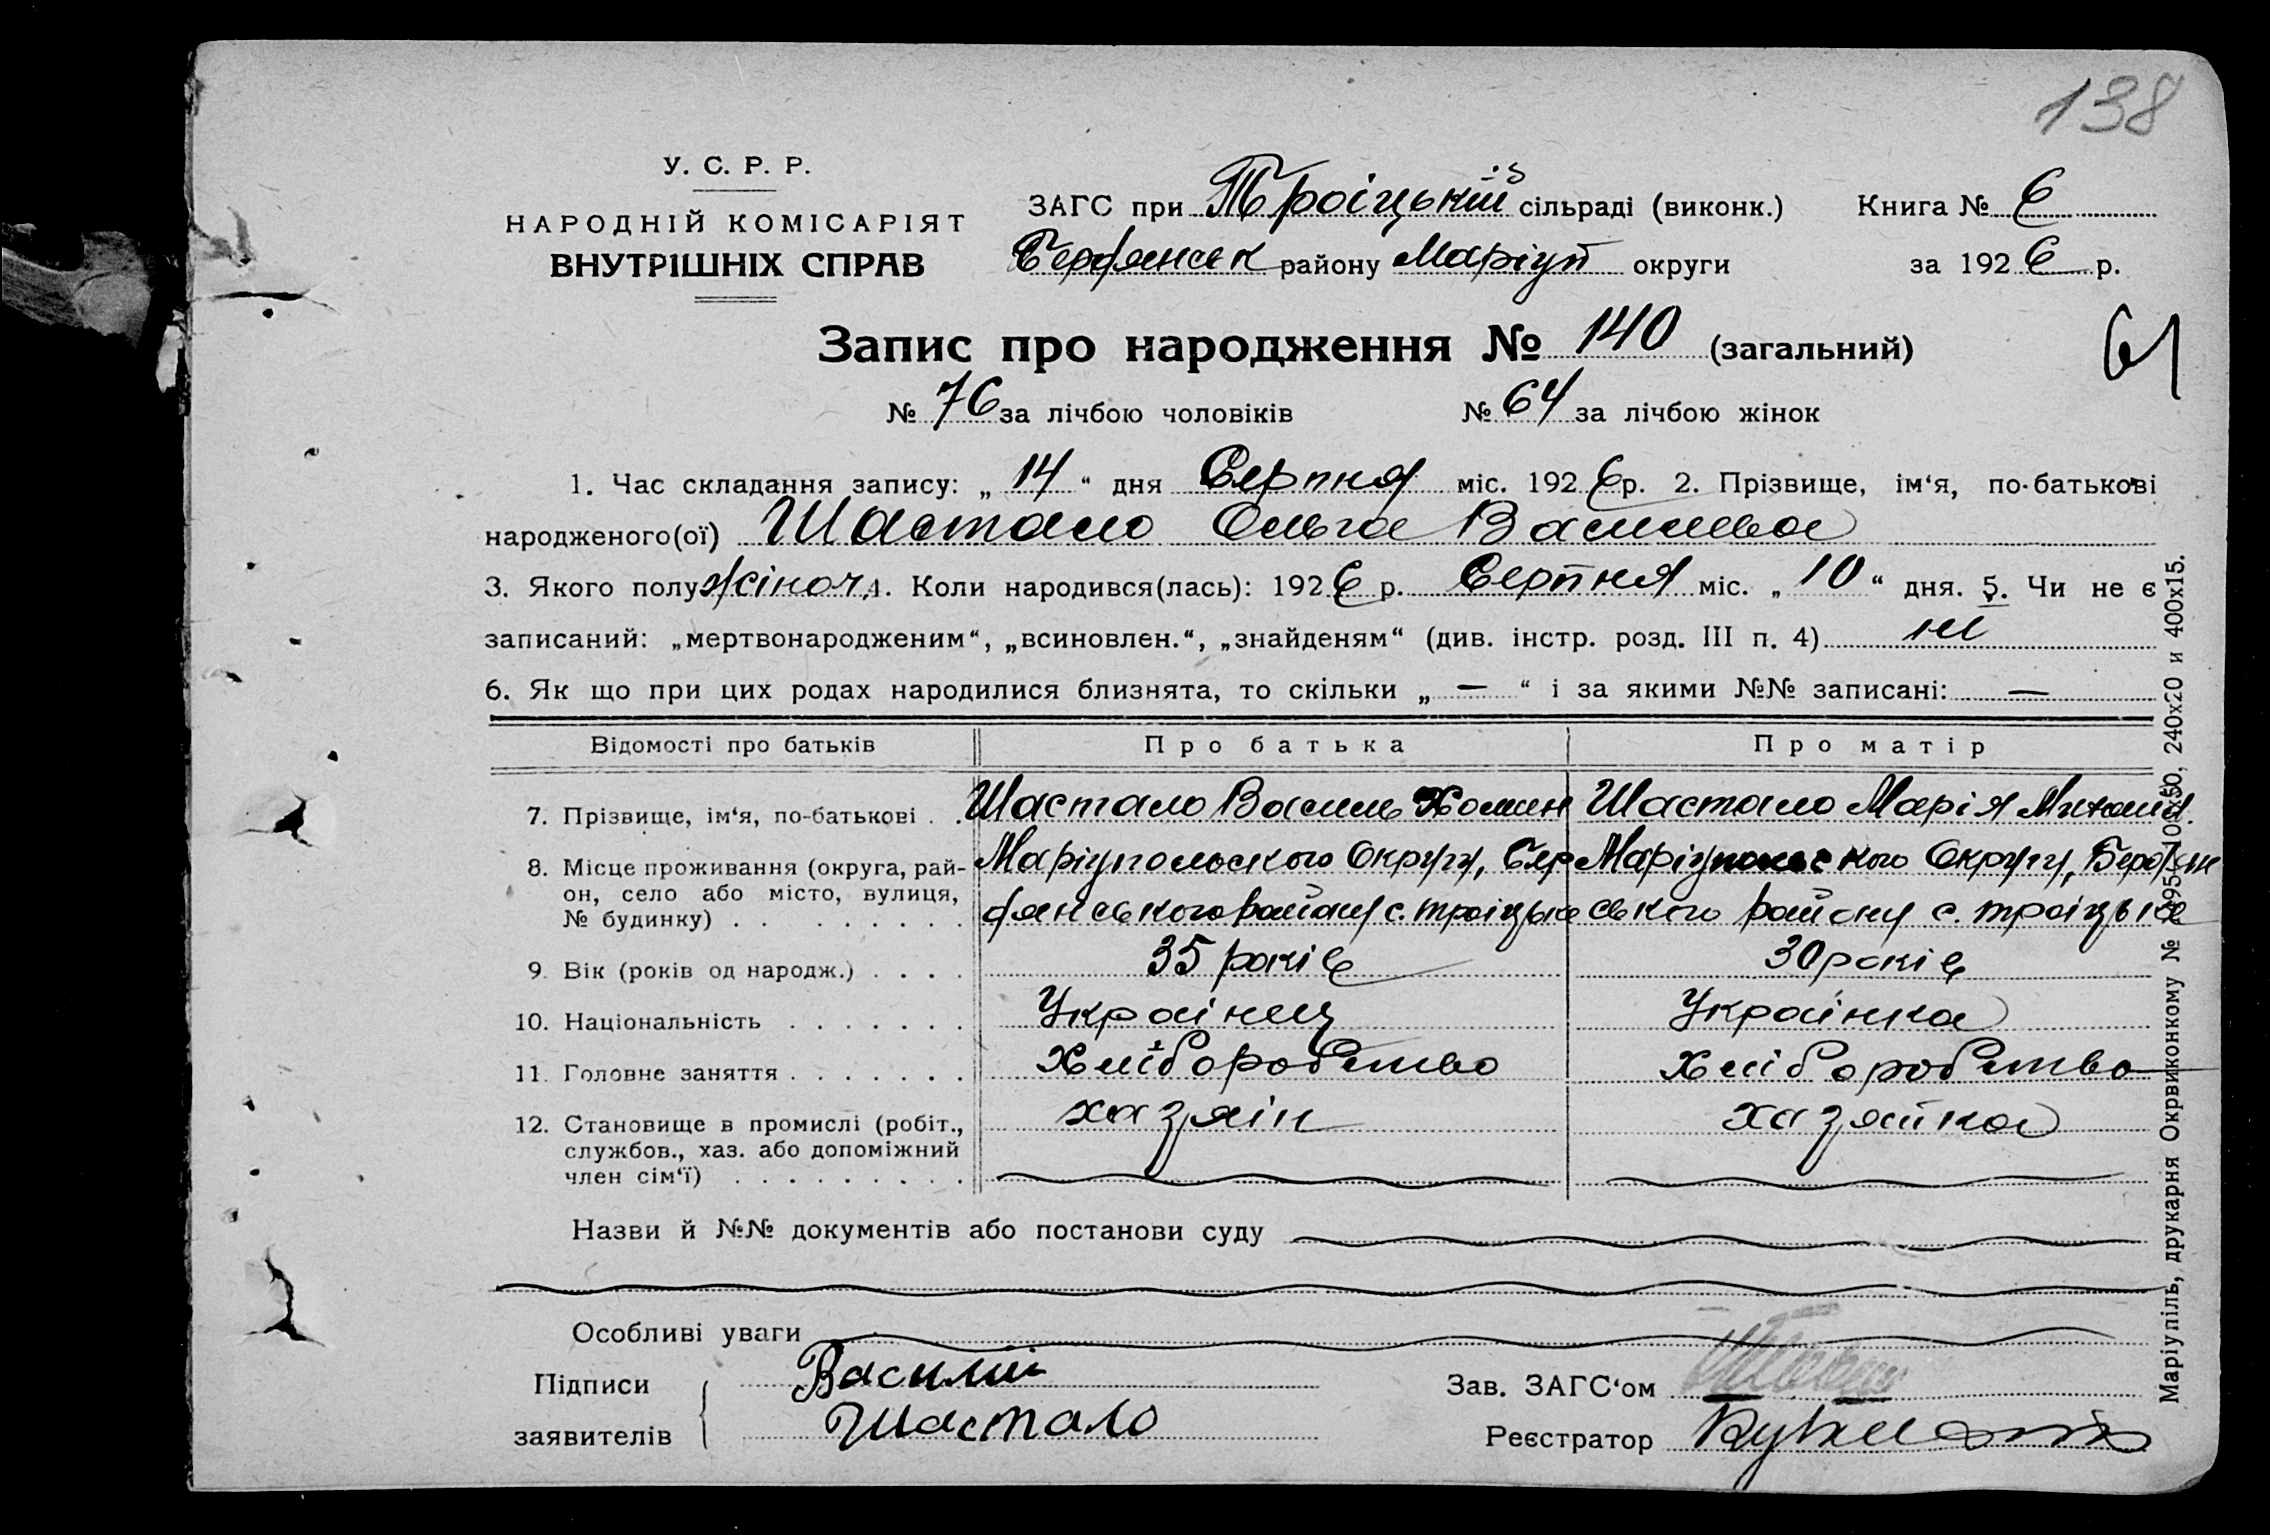 138
У. С. Р. Р.
НАРОДНІЙ КОМІСАРІЯТ
ВНУТРІШНІХ СПРАВ
ЗАГС при Троіцькій сільраді (виконк.) Книга № 6
Бердянськ району Маріуп округи за 1926 р.
Запис про народження № 140 (загальний)
61
№ 76 за лічбою чоловіків № 64 за лічбою жінок
1. Час складання запису: „ 14 “ дня Серпня міс. 1926 р. 2. Прізвище, ім‘я, по-батькові
народженого(ої) Шастало Ольга Васильва
3. Якого полу жіноч. 4. Коли народився(лась): 1926 р. Серпня міс. „ 10 “ дня. 5. Чи не є
записаний: „мертвонародженим“, „всиновлен.“, „знайденям“ (див. інстр. розд. III п. 4) ні
6. Як що при цих родах народилися близнята, то скільки „ — “ і за якими №№ записані: —
Відомості про батьків Про батька Про матір
7. Прізвище, ім‘я, по-батькові . . Шастало Василь Хомин Шастало Марія Михайл.
8. Місце проживання (округа, рай- Маріупольского Округу, Бер Маріупольского Округу, Бердян
он, село або місто, вулиця, дянського району с. Троіцьке ського району с. Троіцьке
№ будинку) . . . . . . . . .
9. Вік (років од народж.) . . . . 35 років 30 років
10. Національність . . . . . . . Украінец Украінка
11. Головне заняття . . . . . . . Хліборобство Хліборобство
12. Становище в промислі (робіт., хазяін хазяйка
службов., хаз. або допоміжний
член сім‘ї) . . . . . . . . .
Назви й №№ документів або постанови суду
Особливі уваги
Підписи Василій Зав. ЗАГС‘ом
заявителів Шастало Реєстратор
Маріупіль, друкарня Окрвиконкому №
240х20 и 400х15.